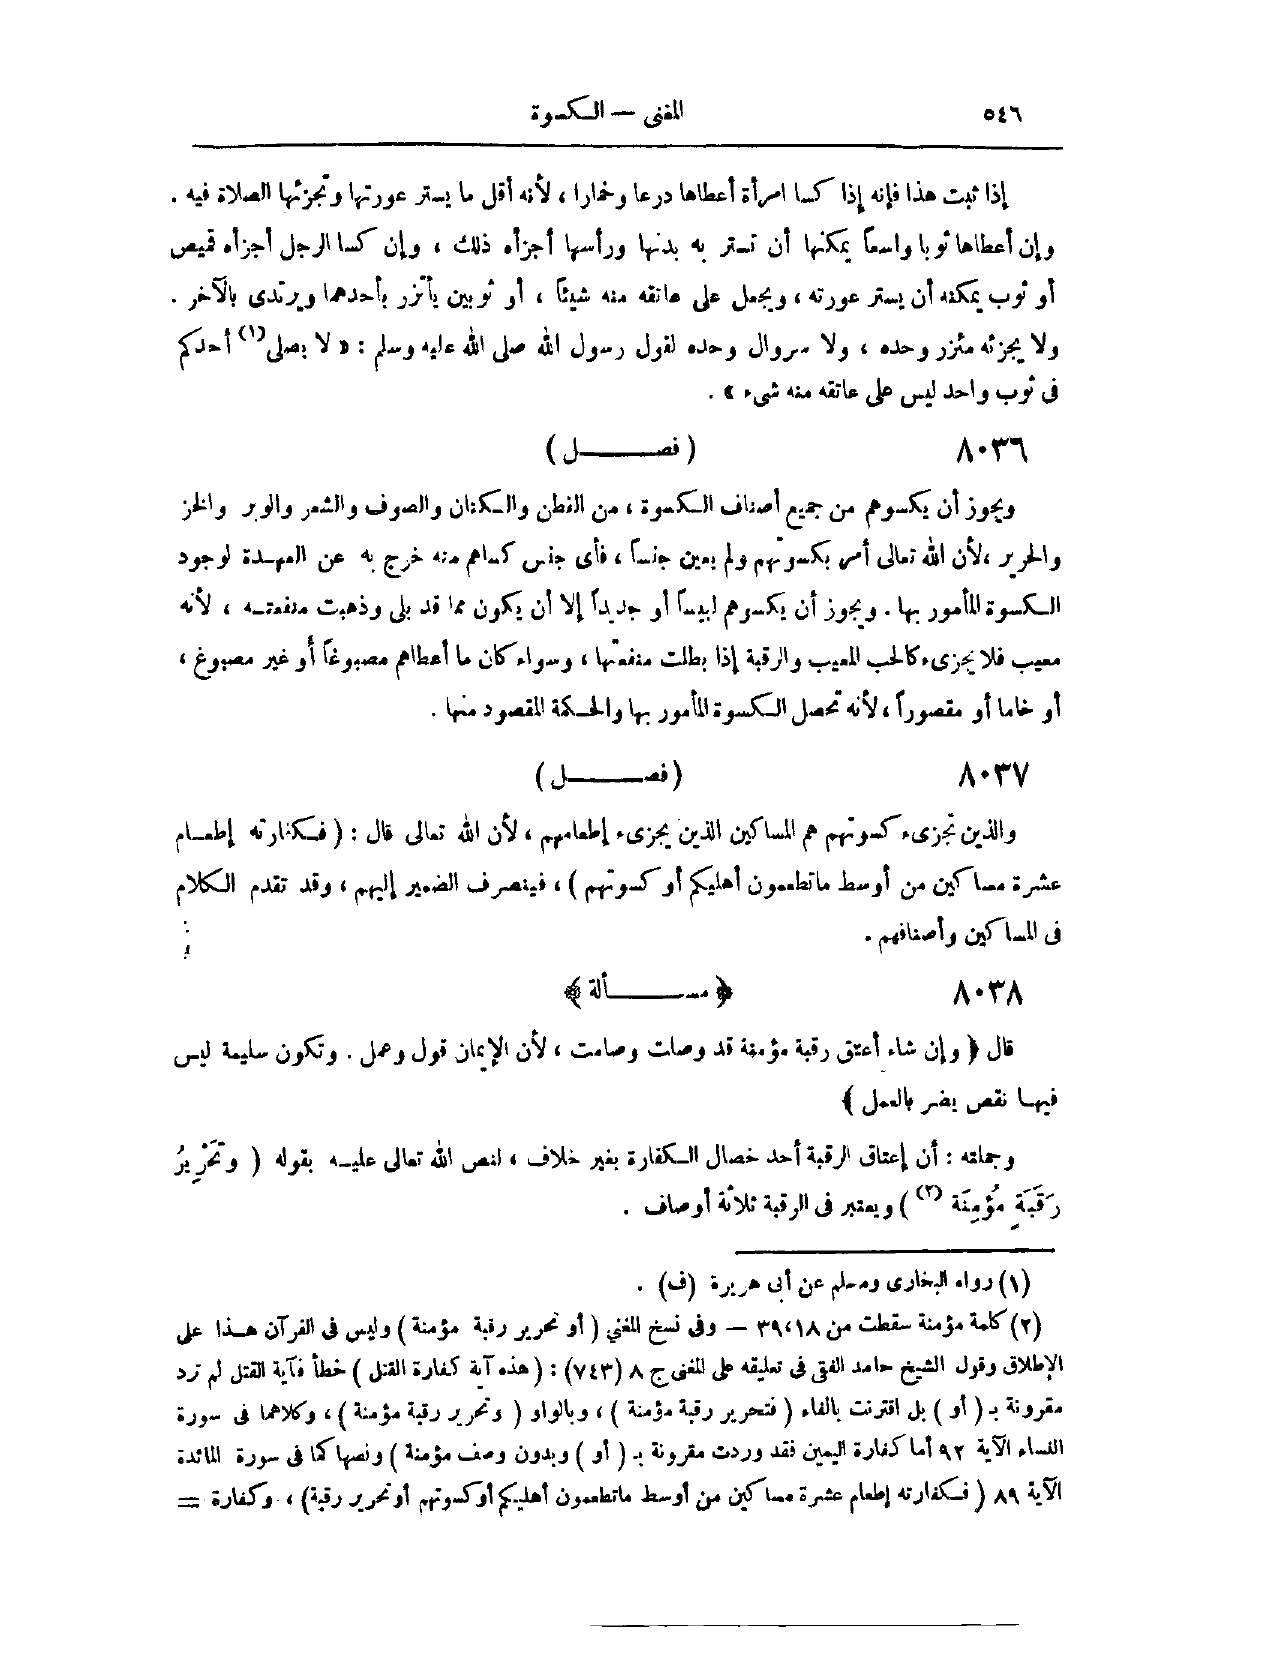 ٥٤٦
المغنى — الكسوة
إذا ثبت هذا فإنه إذا كسا امرأة أعطاها درعا وخمارا ، لأنه أقل ما يستر عورتها وتجزئها الصلاة فيه .
وإن أعطاها ثوبا واسعاً يمكنها أن تستر به بدنها ورأسها أجزأه ذلك ، وإن كسا الرجل أجزأه قميص
أو ثوب يمكنه أن يستر عورته ، ويجعل على عاتقه منه شيئاً ، أو ثوبين يأتزر بأحدهما ويرتدى بالآخر .
ولا يجزئه مئزر وحده ، ولا سروال وحده لقول رسول الله صلى الله عليه وسلم : « لا يصلى(١) أحدكم
فى ثوب واحد ليس على عاتقه منه شىء » .
٨٠٣٦
( فصـــــل )
ويجوز أن يكسوهم من جميع أصناف الكسوة ، من القطن والكتان والصوف والشعر والوبر والخز
والحرير ، لأن الله تعالى أمر بكسوتهم ولم يعين جنساً ، فأى جنس كساهم منه خرج به عن العهدة لوجود
الكسوة المأمور بها . ويجوز أن يكسوهم لبيساً أو جديداً إلا أن يكون مما قد بلى وذهبت منفعته ، لأنه
معيب فلا يجزىء كالحب المعيب والرقبة إذا بطلت منفعتها ، وسواء كان ما أعطاهم مصبوغاً أو غير مصبوغ ،
أو خاما أو مقصوراً ، لأنه تحصل الكسوة المأمور بها والحكمة المقصود منها .
٨٠٣٧
( فصـــــل )
والذين تجزىء كسوتهم هم المساكين الذين يجزىء إطعامهم ، لأن الله تعالى قال : ( فكفارته إطعام
عشرة مساكين من أوسط ماتطعمون أهليكم أو كسوتهم ) ، فينصرف الضمير إليهم ، وقد تقدم الكلام
فى المساكين وأصنافهم .
٨٠٣٨
﴿ مســـــألة ﴾
قال ﴿ وإن شاء أعتق رقبة مؤمنة قد وصلت وصامت ، لأن الإيمان قول وعمل . وتكون سليمة ليس
فيها نقص يضر بالعمل ﴾
وجملته : أن إعتاق الرقبة أحد خصال الكفارة بغير خلاف ، لنص الله تعالى عليه بقوله ( وتَحْرِيرُ
رَقَبَةٍ مُؤْمِنَة (٢) ) ويعتبر فى الرقبة ثلاثة أوصاف .
(١) رواه البخارى ومسلم عن أبى هريرة (ف) .
(٢) كلمة مؤمنة سقطت من ٣٩،١٨ — وفى نسخ المغني ( أو تحرير رقبة مؤمنة ) وليس فى القرآن هذا على
الإطلاق وقول الشيخ حامد الفقى فى تعليقه على المغنى ج ٨ (٧٤٣) : ( هذه آية كفارة القتل ) خطأ فآية القتل لم ترد
مقرونة بـ ( أو ) بل اقترنت بالفاء ( فتحرير رقبة مؤمنة ) ، وبالواو ( وتحرير رقبة مؤمنة ) ، وكلاهما فى سورة
النساء الآية ٩٢ أما كفارة اليمين فقد وردت مقرونة بـ ( أو ) وبدون وصف مؤمنة ) ونصها كما فى سورة المائدة
الآية ٨٩ ( فكفارته إطعام عشرة مساكين من أوسط ماتطعمون أهليكم أو كسوتهم أو تحرير رقبة) ، وكفارة =